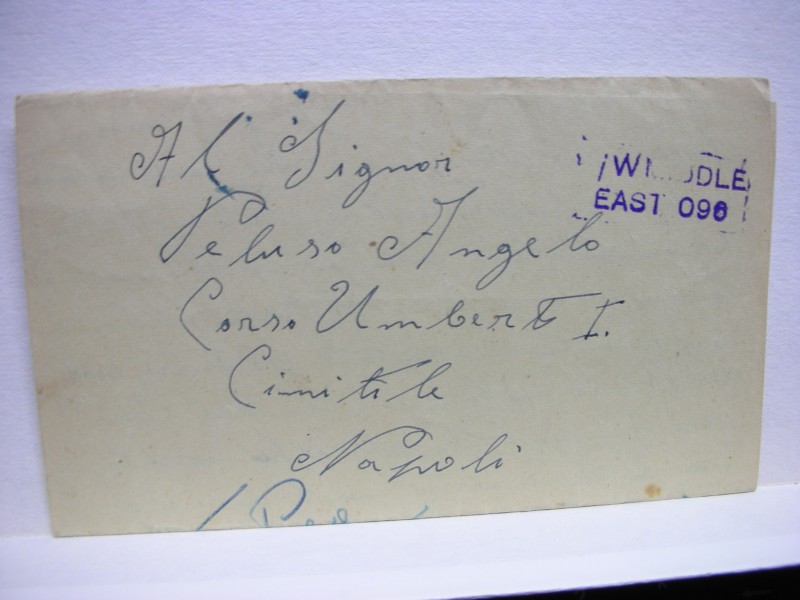 Al Signor
Peluso Angelo
Corso Umberto I.
Cimitile
Napoli
EAST 096